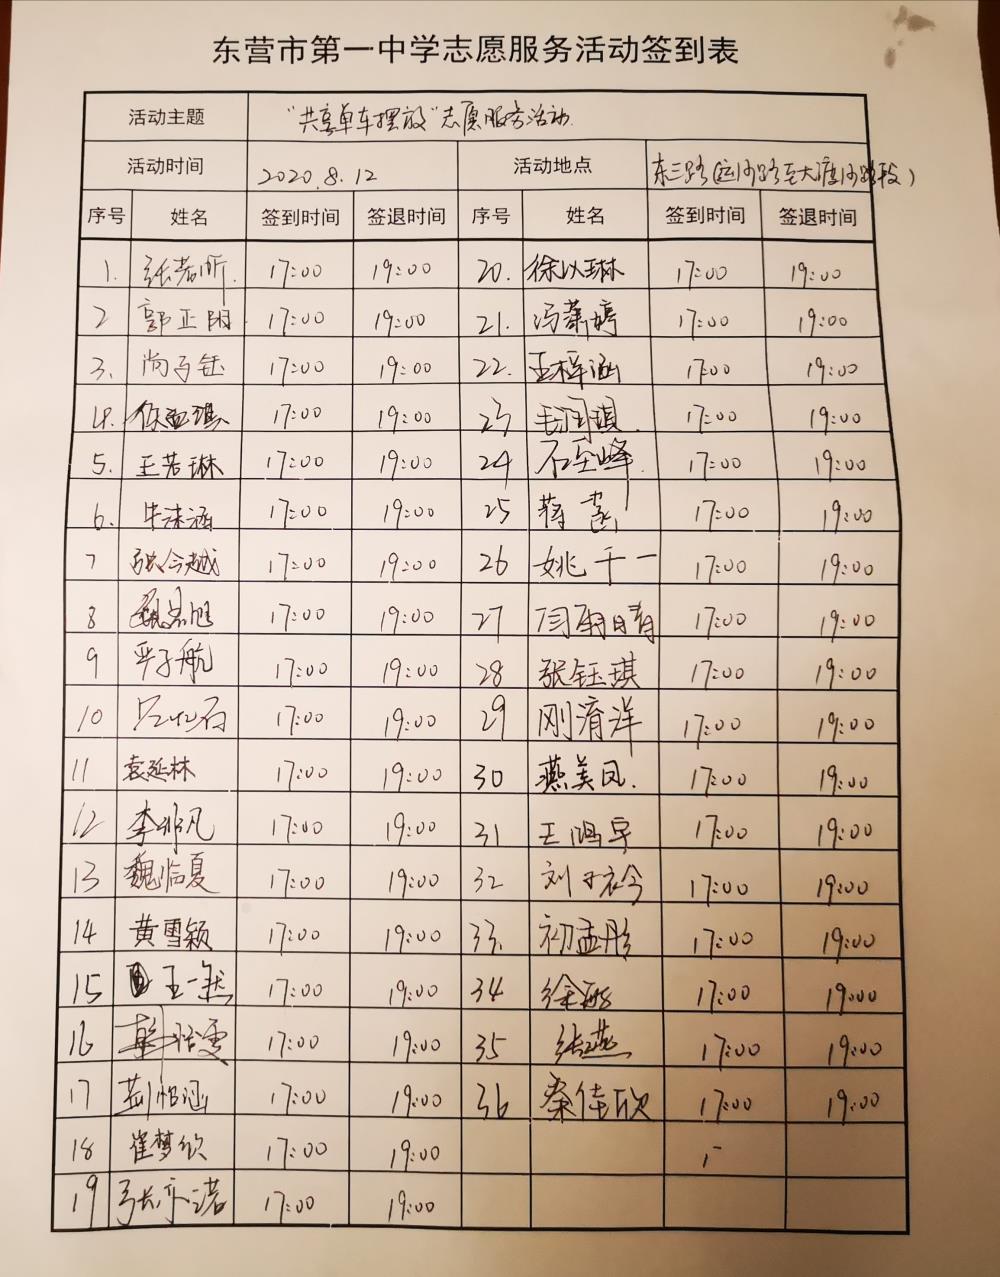 东营市第一中学志愿服务活动签到表
活动主题 "共享单车摆放"志愿服务活动
活动时间 2020.8.12 活动地点 东三路(运河路至大渡河路段)
序号 姓名 签到时间 签退时间 序号 姓名 签到时间 签退时间
1. 张若昕. 17:00 19:00 20. 徐以琳 17:00 19:00
2 郭正阳 17:00 19:00 21. 冯萧婷 17:00 19:00
3. 尚子钰 17:00 19:00 22. 王梓涵 17:00 19:00
4. 17:00 19:00 23 毛润琪. 17:00 19:00
5. 王若琳 17:00 19:00 24 石至峰. 17:00 19:00
6. 牛沫涵 17:00 19:00 25 蒋 17:00 19:00
7 张令越 17:00 19:00 26 姚千一 17:00 19:00
8 17:00 19:00 27 闫雨晴 17:00 19:00
9 平子航 17:00 19:00 28 张钰琪 17:00 19:00
10 17:00 19:00 29 刚淯洋 17:00 19:00
11 袁延林 17:00 19:00 30 燕美凤. 17:00 19:00
12 李非凡 17:00 19:00 31 王鸿宇 17:00 19:00
13 魏临夏 17:00 19:00 32 刘子衿 17:00 19:00
14 黄雪颖 17:00 19:00 33. 初孟彤 17:00 19:00
15 王一然 17:00 19:00 34 17:00 19:00
16 17:00 19:00 35 张燕 17:00 19:00
17 17:00 19:00 36 秦佳欣 17:00 19:00
18 崔梦欣 17:00 19:00
19 张亦诺 17:00 19:00